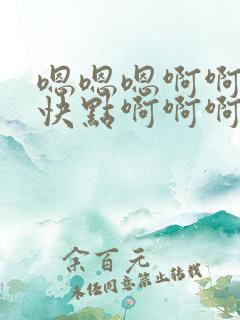 嗯嗯嗯啊啊
快點啊啊啊
余百元
未经同意禁止转载